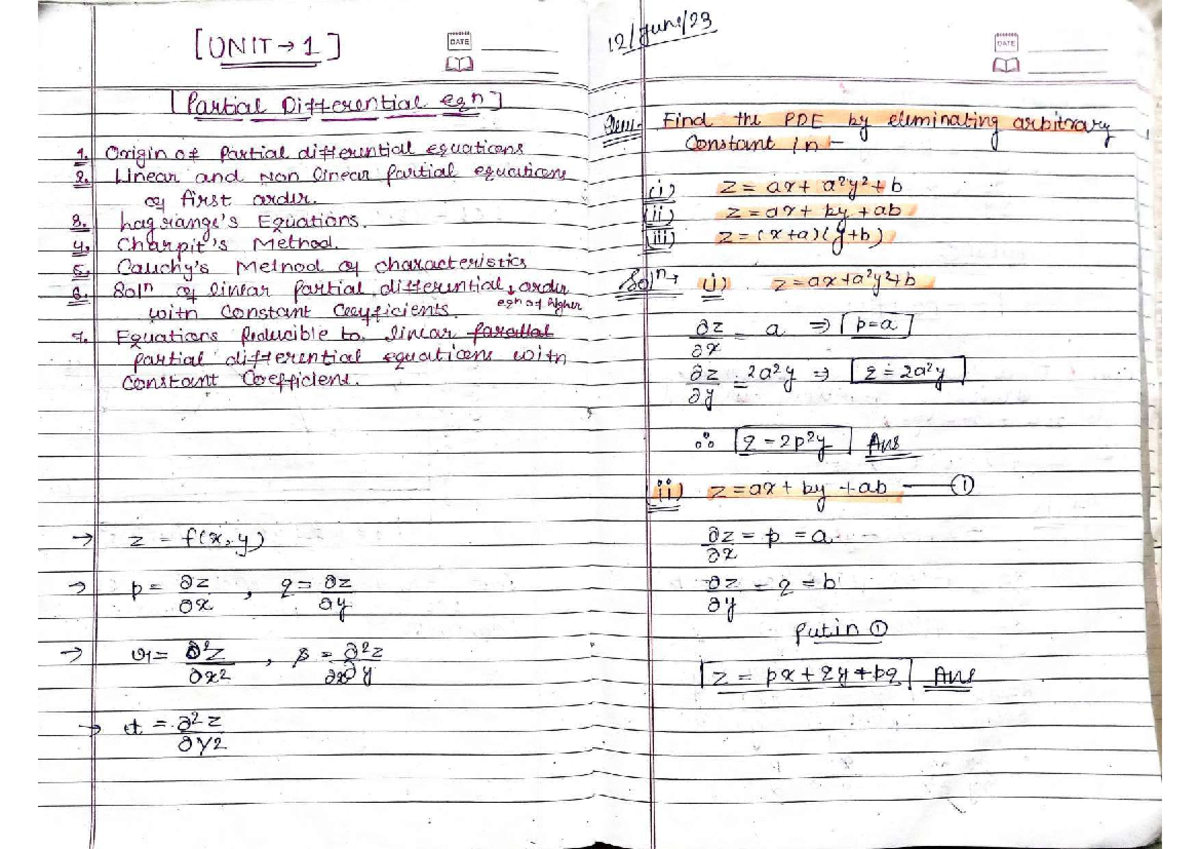 [UNIT → 1]
DATE
[Partial Differential eqn]
1. Origin of Partial differential equations
2. Linear and Non linear partial equations
of first order.
3. Lagrange's Equations.
4. Charpit's Method.
5. Cauchy's Method of characteristics
6. Solⁿ of linear partial differential, order
eqn of higher
with Constant Coefficients.
7. Equations Reducible to linear
partial differential equations with
Constant Coefficient.
→ z = f(x, y)
→ p = ∂z/∂x , q = ∂z/∂y
→ r = ∂²z/∂x2 , s = ∂²z/∂x∂y
→ t = ∂²z/∂y2
12/June/23
DATE
Find the PDE by eliminating arbitrary
Constant in -
(i) z = ax + a²y² + b
(ii) z = ax + by + ab
(iii) z = (x+a)(y+b)
Solⁿ → (i) z = ax+a²y²+b
∂z/∂x = a ⇒ p=a
∂z/∂y = 2a²y ⇒ q = 2a²y
∴ q = 2p²y Ans
(ii) z = ax + by + ab — ①
∂z/∂x = p = a
∂z/∂y = q = b
Put in ①
z = px + qy + pq Ans